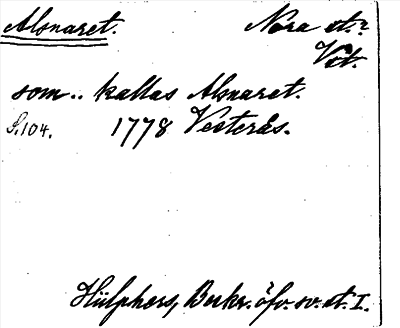 Alsnaret. Nora st.?
Vst.
som.. kallas Alsnaret.
S.104. 1778 Vesterås.
Hülphers, Beskr. öfv. sv. st. I.